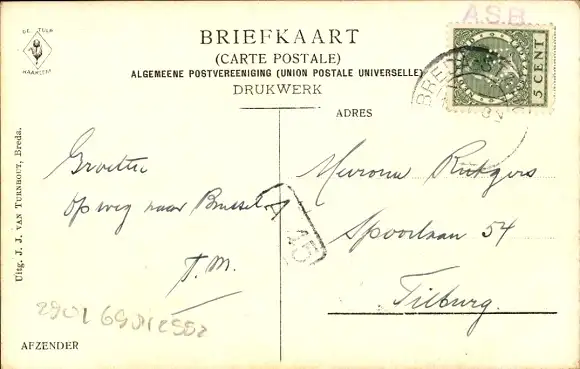 A.S.B.
DE TULP
HAARLEM
BRIEFKAART
(CARTE POSTALE)
ALGEMEENE POSTVEREENIGING (UNION POSTALE UNIVERSELLE)
DRUKWERK
5 CENT
BREDA
ADRES
Uitg. J. J. VAN TURNHOUT, Breda.
Groeten
op weg naar Brussel
T.M.
15
Mevrouw Rutgers
Spoorlaan 54
Tilburg.
AFZENDER